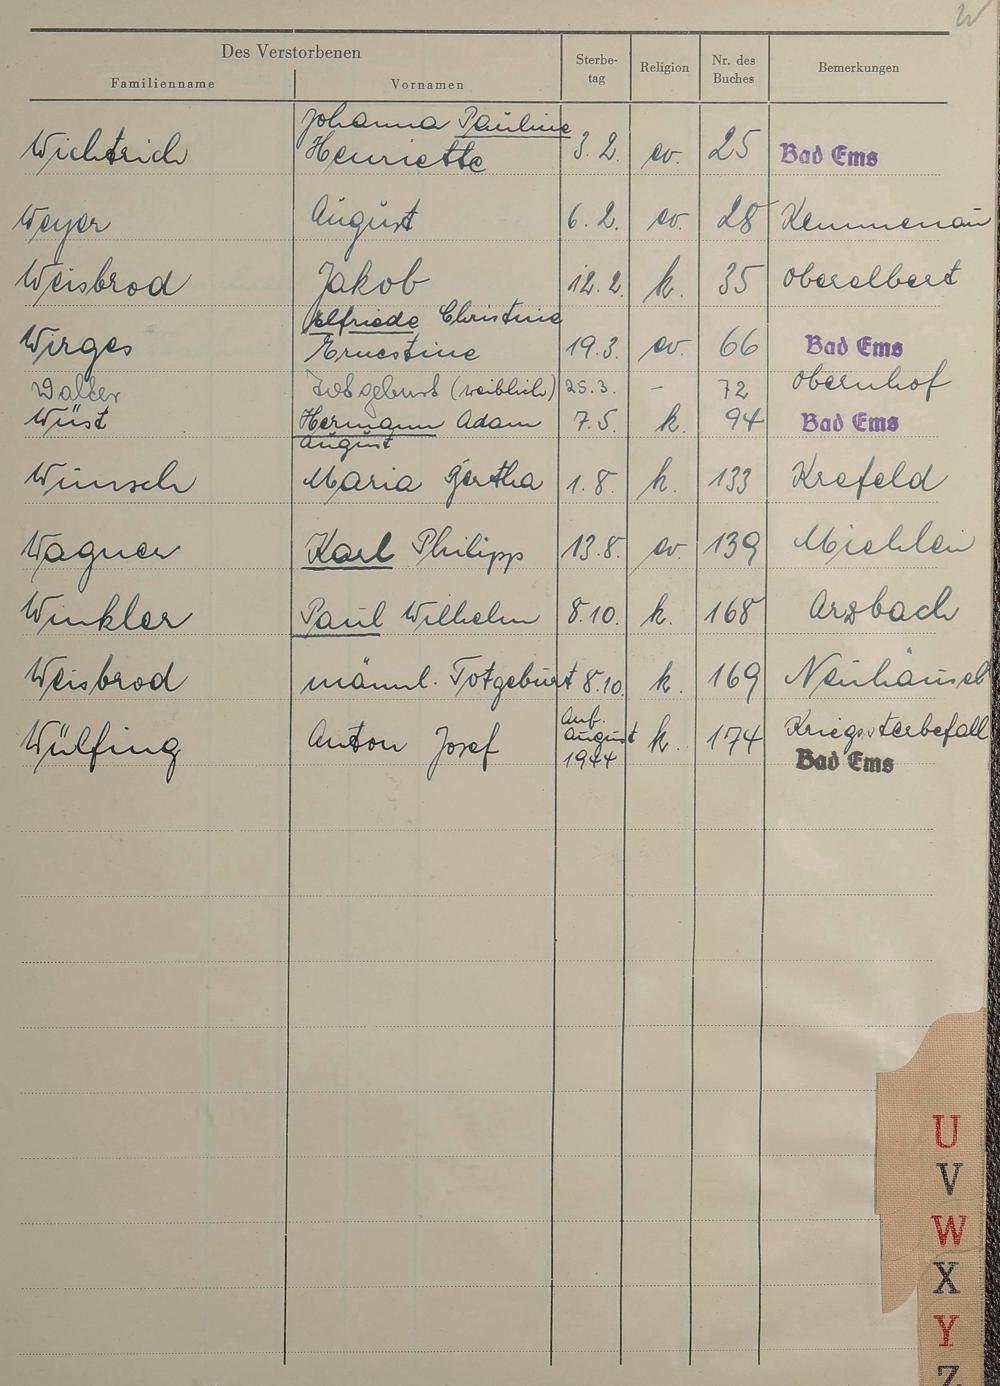 W
Des Verstorbenen
Familienname Vornamen Sterbe-tag Religion Nr. des Buches Bemerkungen
Johanna Pauline
Wichtrich Henriette 3. 2. ev. 25 Bad Ems
Weyer August 6. 2. ev. 28 Kemmenau
Weisbrod Jakob 12. 2. k. 35 Oberelbert
Elfriede Christine
Wirges Ernestine 19. 3. ev. 66 Bad Ems
Walter Totgeburt (weiblich) 25. 3. - 72 Obernhof
Wüst Hermann Adam 7. 5. k. 94 Bad Ems
August
Wünsch Maria Gertha 1. 8. k. 133 Krefeld
Wagner Karl Philipp 13. 8. ev. 139 Miehlen
Winkler Paul Wilhelm 8. 10. k. 168 Arzbach
Weisbrod männl. Totgeburt 8. 10. k. 169 Neuhäusel
Anf.
Wülfing Anton Josef August k. 174 Kriegssterbefall
1944 Bad Ems
U
V
W
X
Y
Z